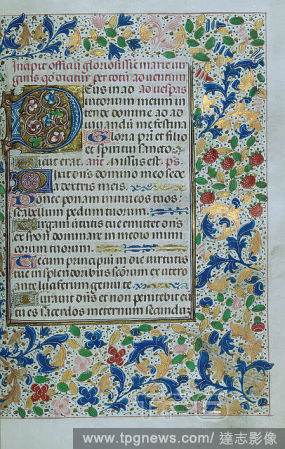 Incipit officiū gloriosissime marie uir
ginis q̄ dicitur per totū aduentum
Deus in ad ad uespas
iutorium meum inten
tende domine ad ad
iuuandū me festina
Gloria pri et filio
et spiritui sancto
Sicut erat añe Missus est ps
Dixit dn̄s domino meo sede
a dextris meis
Donec ponam inimicos tuos
scabellum pedum tuorum
Virgam uirtutis tue emittet dn̄s
ex syon dominare in medio inimi
corum
Tecum principiū in die uirtutis
tue in splendoribus sc̄orum ex utero
ante luciferum genui te
Iurauit dn̄s et non penitebit eū
tu es sacerdos ineternum secundū
www.tpgnews.com/ 達志影像